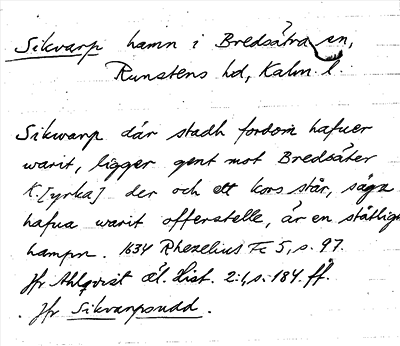 Sikvarp hamn i Bredsätra sn,
Runstens hd, Kalm. l.
Sikwarp där stadh fordom hafuer
warit, ligger gent mot Bredsäter
K.[yrka] der och ett kors står, säges
hafua warit offerstelle, är en ståtligh
hampn. 1634 Rhezelius Fc 5, s. 97.
Jfr Ahlqvist Öl. Hist. 2:1, s. 184 ff.
Jfr Sikvarpsudd.